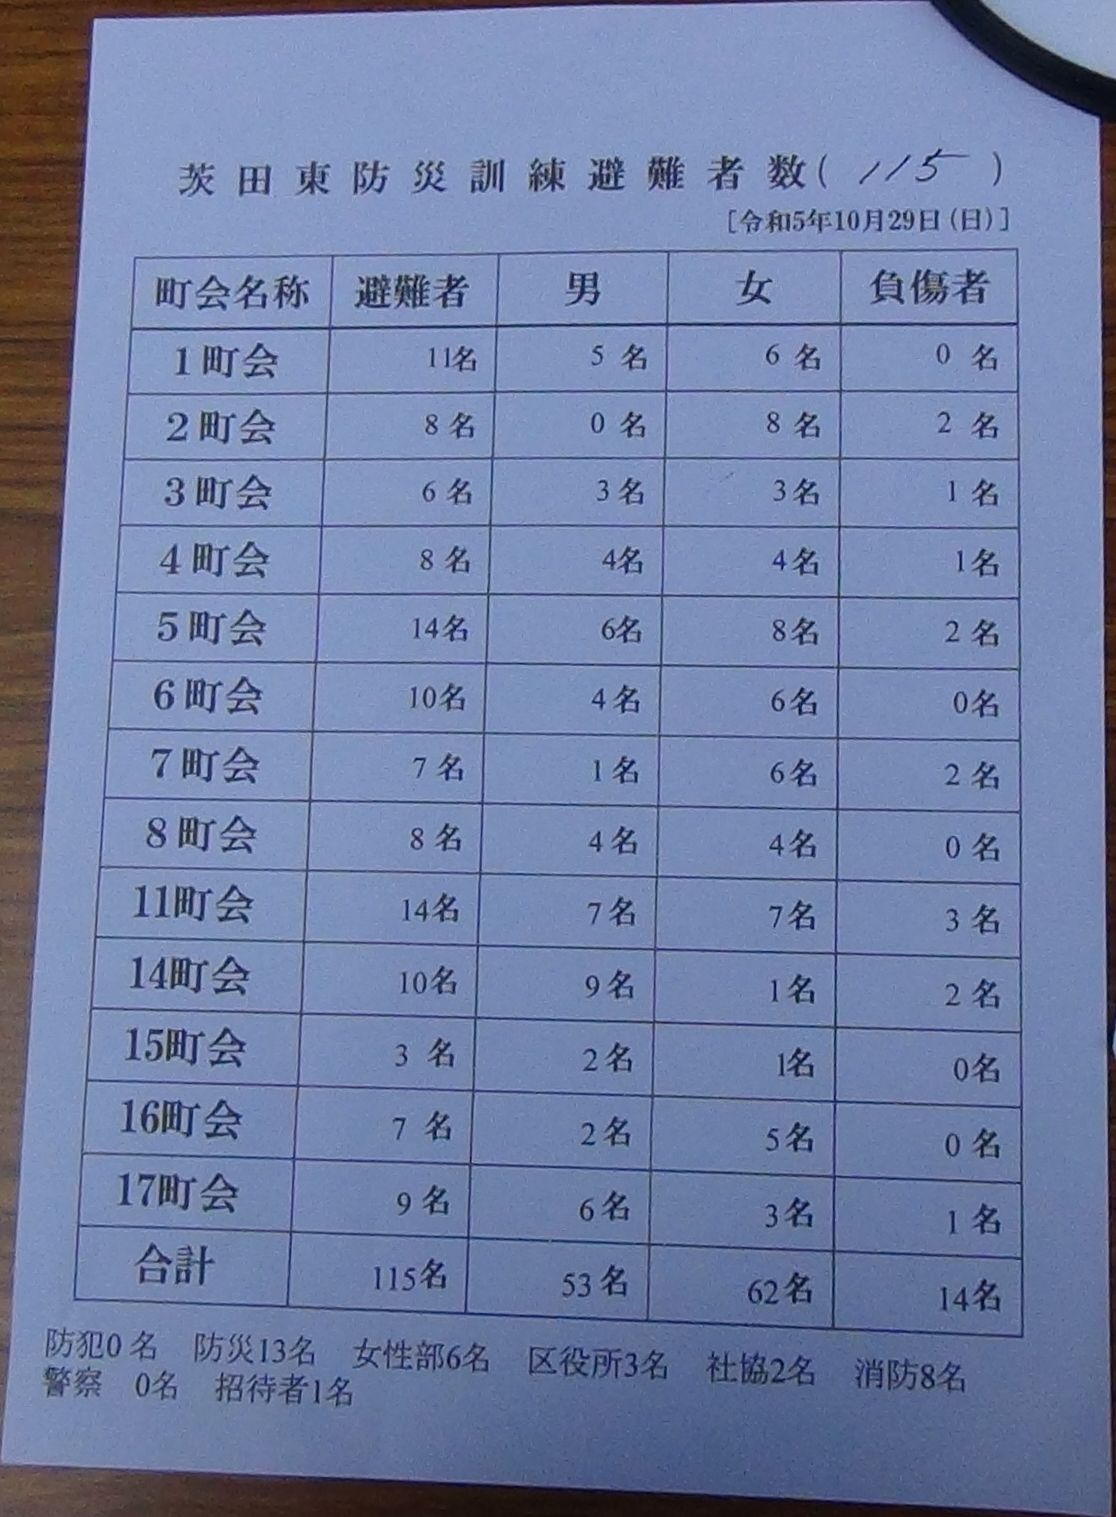 茨田東防災訓練避難者数( 115 )
[令和5年10月29日(日)]
町会名称 避難者 男 女 負傷者
1町会 11名 5名 6名 0名
2町会 8名 0名 8名 2名
3町会 6名 3名 3名 1名
4町会 8名 4名 4名 1名
5町会 14名 6名 8名 2名
6町会 10名 4名 6名 0名
7町会 7名 1名 6名 2名
8町会 8名 4名 4名 0名
11町会 14名 7名 7名 3名
14町会 10名 9名 1名 2名
15町会 3名 2名 1名 0名
16町会 7名 2名 5名 0名
17町会 9名 6名 3名 1名
合計 115名 53名 62名 14名
防犯0名 防災13名 女性部6名 区役所3名 社協2名 消防8名
警察 0名 招待者1名